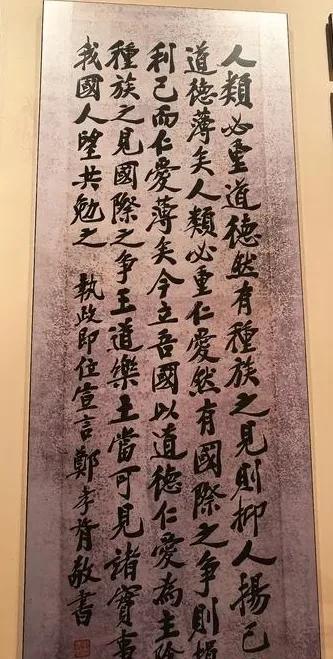 人類必重道德然有種族之見則抑人揚己
道德薄矣人類必重仁愛然有國際之爭則損
利己而仁愛薄矣今立吾國以道德仁愛為主除
種族之見國際之爭王道樂土當可見諸實事
我國人望共勉之
執政即位宣言鄭孝胥敬書